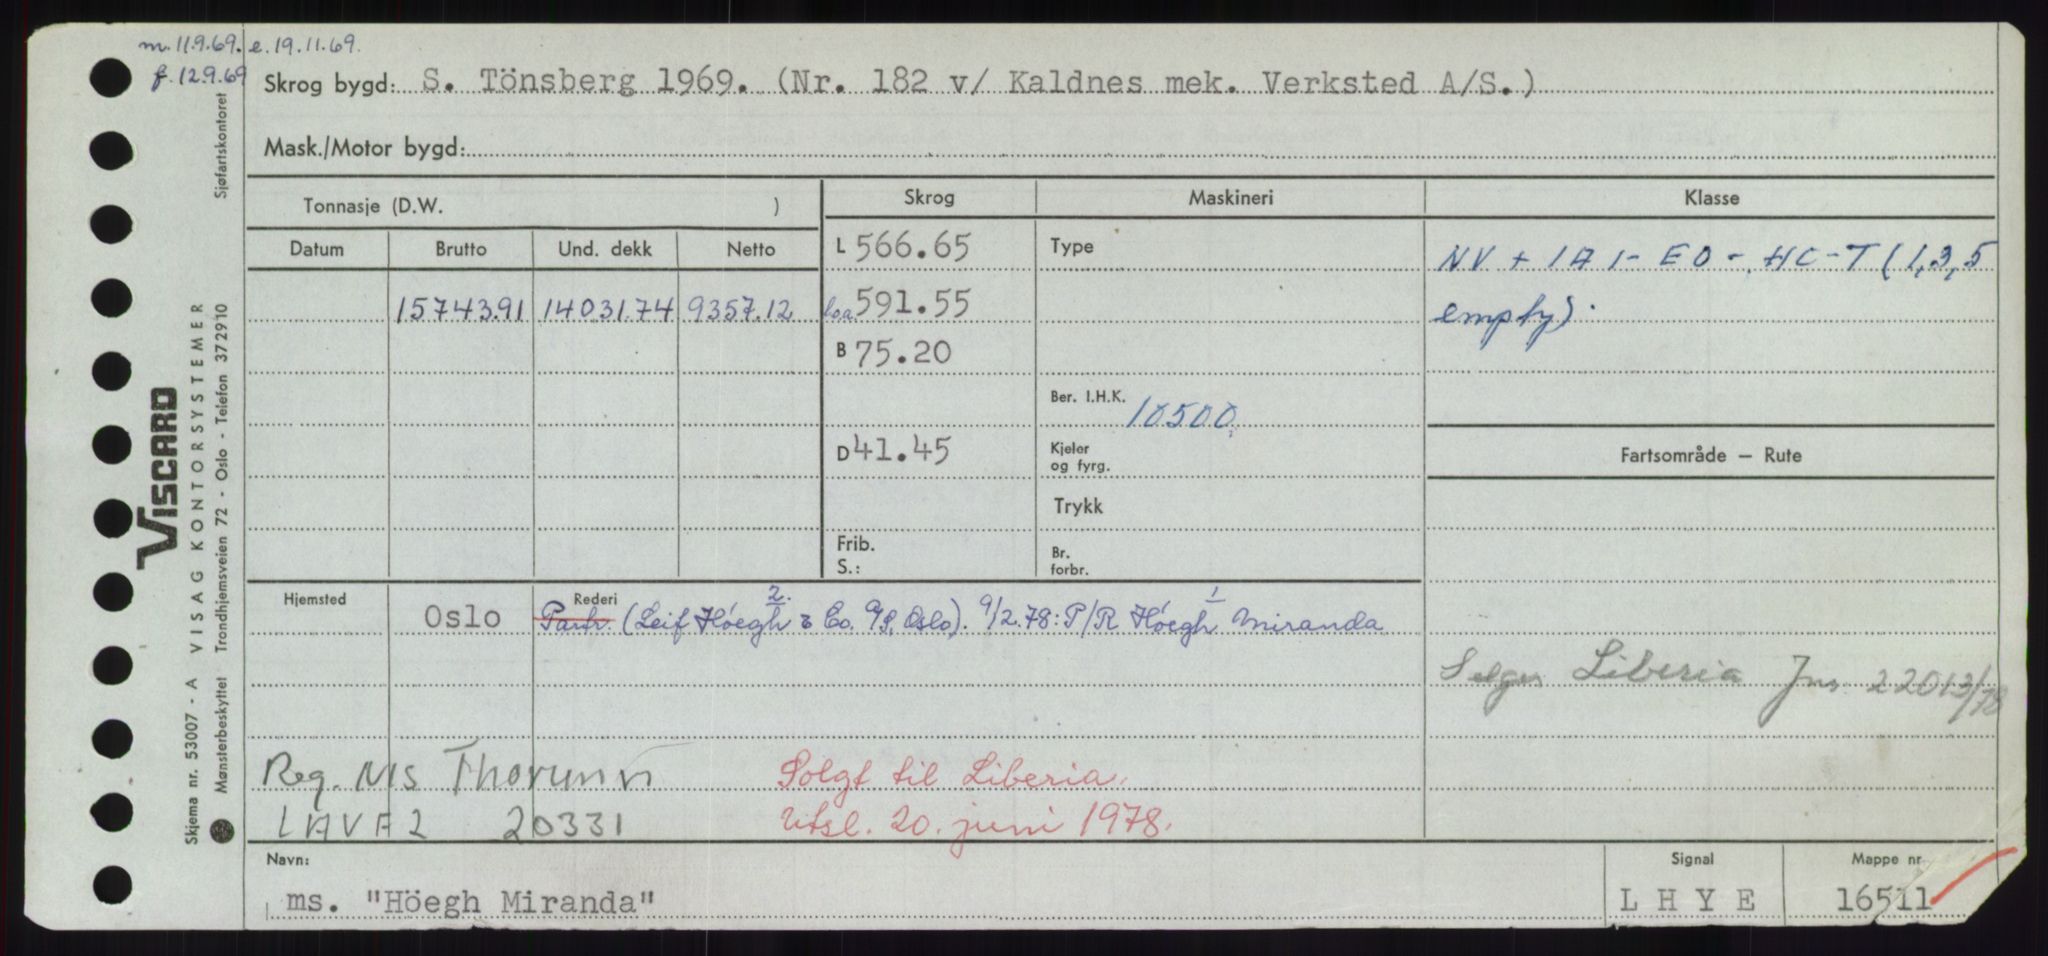 m. 11.9.69. e. 19.11.69.
f. 12.9.69
Skrog bygd: S. Tönsberg 1969. (Nr. 182 v/ Kaldnes mek. Verksted A/S.)
Mask./Motor bygd:
Tonnasje (D.W. )
Skrog
Maskineri
Klasse
Datum
Brutto
Und. dekk
Netto
L 566.65
Type
NV + 1A1 - EO - HC - T (1,3,5
15743.91 14031.74 9357.12
loa 591.55
empty).
B 75.20
Ber. I.H.K. 10500
D 41.45
Kjeler
og fyrg.
Fartsområde — Rute
Trykk
Frib.
S.:
Br.
forbr.
Hjemsted
Oslo
Rederi
2.
1
Partr. (Leif Höegh & Co. A/S, Oslo). 9/2.78: P/R Höegh Miranda
Selges Liberia Jnr 2201 3/78
Reg. M/s Thorunn
Solgt til Liberia.
LAVA2 20331
Utsl. 20. juni 1978.
Navn:
ms. "Höegh Miranda"
Signal
L H Y E
Mappe nr
16511
Skjema nr. 53007 - A VISAG KONTORSYSTEMER
VISCARD
Mønsterbeskyttet Trondhjemsveien 72 - Oslo - Telefon 372910 Sjøfartskontoret